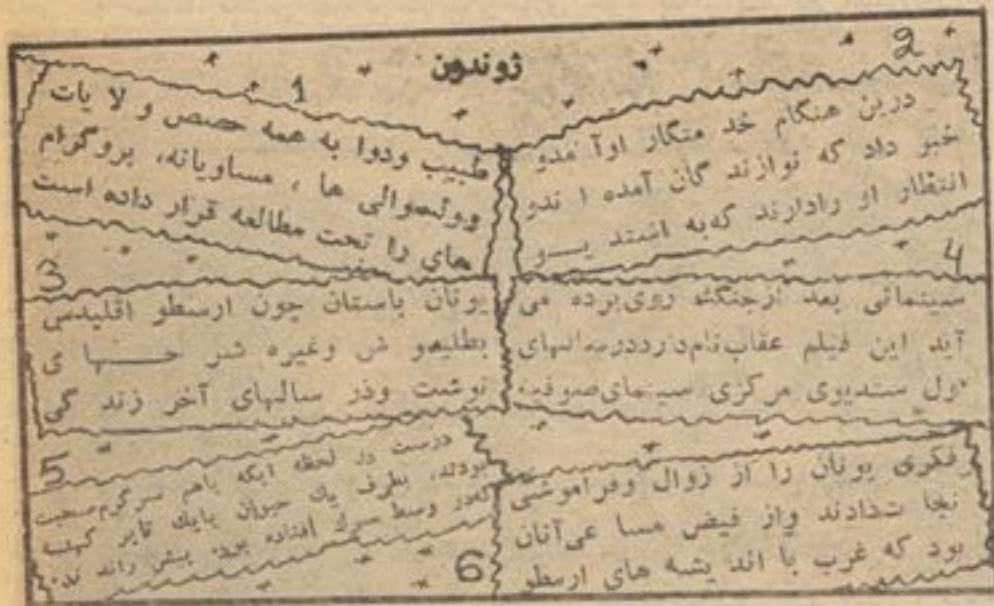 ژوندون
1
طبیب ودوا به همه حصص و لا یات
وولسوالی ها ، مساویانه، پروگرام
های را تحت مطالعه قرار داده است
2
درین هنگام خد متگار اوآ مدو
خبر داد که نوازند گان آمده ا ندو
انتظار او رادارند که به اشند یـــو
3
یونان باستان چون ارسطو اقلیدس
بطلیمو ش وغیره شر حـــها ی
نوشت ودر سالهای آخر زند گی
4
سینمائی بعد ازجنگ روی پرده می
آید این فیلم عقاب نام دارد در سالهای
ول ستدیوی مرکزی سینمای صوفیه
5
درست در لحظه ایکه باهم سرگرم صحبت
بودند، بطرف یك حیوان بایك تایر کهنه
وسط سرك افتاده بود، پیش راند ند.
6
فکری یونان را از زوال وفراموشی
نجا تدادند واز فیض مسا عی آنان
بود که غرب با اند یشه های ارسطو